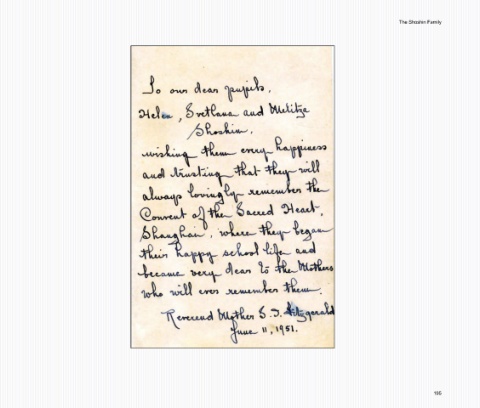 The Shoshin Family
To our dear pupils,
Helen, Svetlana and Melitza
Shoshin,
wishing them every happiness
and trusting that they will
always lovingly remember the
Convent of the Sacred Heart,
Shanghai, where they began
their happy school life and
became very dear to the Mothers
who will ever remember them.
Reverend Mother S. J. Fitzgerald
June 11, 1951.
195